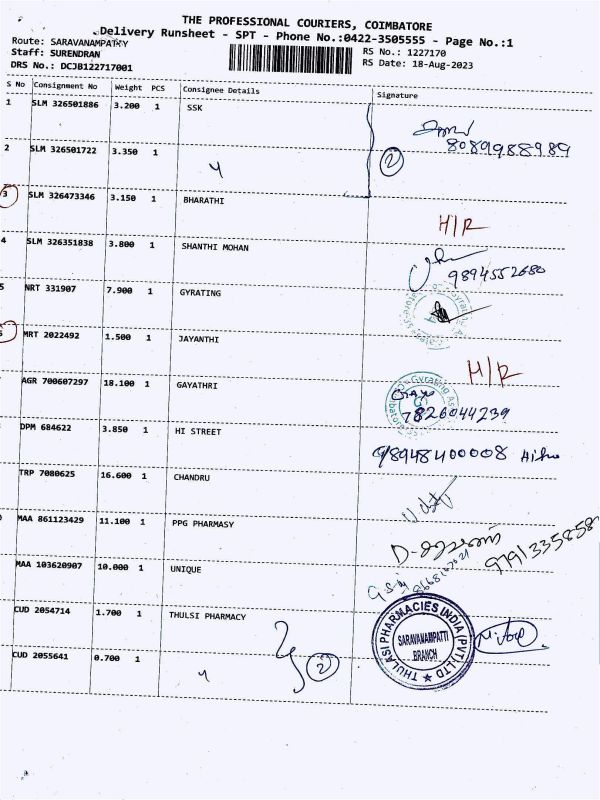 THE PROFESSIONAL COURIERS, COIMBATORE
Delivery Runsheet - SPT - Phone No.:0422-3505555 - Page No.:1
Route: SARAVANAMPATTY
RS No.: 1227170
Staff: SURENDRAN
RS Date: 18-Aug-2023
DRS No.: DCJB122717001
S No Consignment No Weight PCS Consignee Details Signature
1 SLM 326501886 3.200 1 SSK
8089988989
2 SLM 326501722 3.350 1 4 2
3 SLM 326473346 3.150 1 BHARATHI H/R
4 SLM 326351838 3.800 1 SHANTHI MOHAN
9894552680
5 NRT 331907 7.900 1 GYRATING
MRT 2022492 1.500 1 JAYANTHI H/R
AGR 700607297 18.100 1 GAYATHRI
7826044239
DPM 684622 3.850 1 HI STREET
TRP 7080625 16.600 1 CHANDRU
MAA 861123429 11.100 1 PPG PHARMASY
MAA 103620907 10.000 1 UNIQUE
CUD 2054714 1.700 1 THULSI PHARMACY
THULASI PHARMACIES INDIA (PVT) LTD
SARAVANAMPATTI
BRANCH
CUD 2055641 0.700 1 4 2